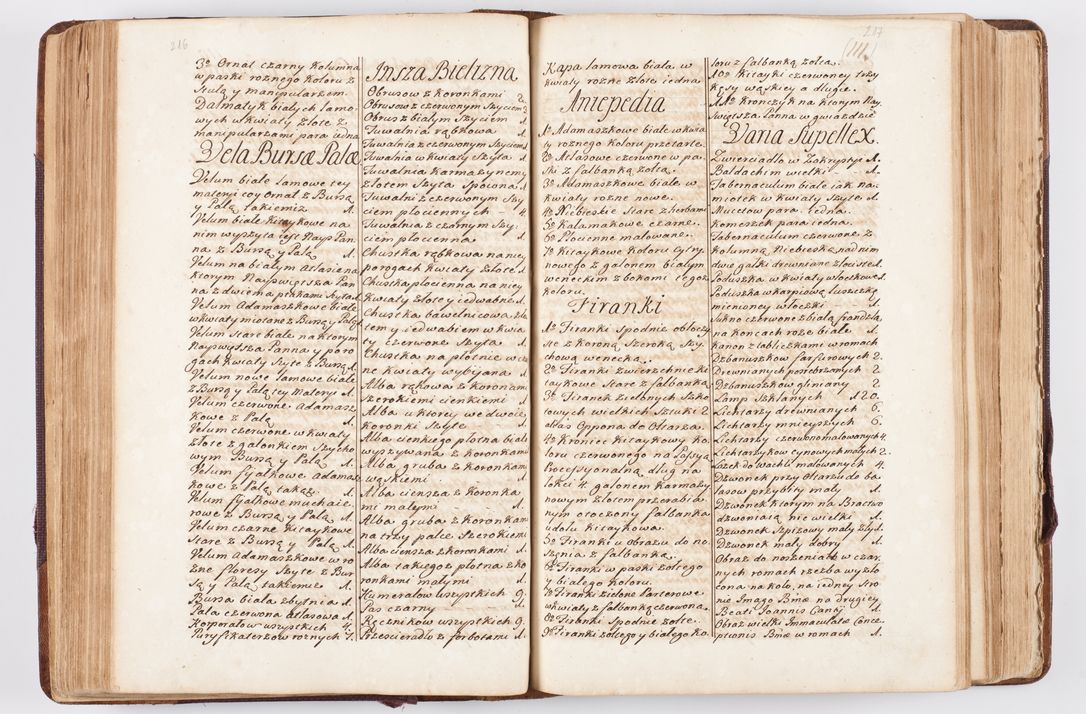 216
3º Ornat czarny kolumna
w paski rożnego koloru z
stułą y manipularzem.
Dalmatyk białych lamo-
wych w kwiaty złote z
manipularzami para iedna
Vela Bursæ Palæ
Velum białe lamowe tey
materyi coy Ornat z Bursą
y Palą takiemiż 1.
Velum białe kitaykowe na
nim wyszyta
na z Bursą y Palą 1.
Velum na białym Atłasie na
ktorym Nayświętsza Pan
na z dwiema ptakami szyta 1.
Velum Adamaszkowe białe
w kwiaty z Bursą y Palą 1.
Velum stare białe na ktorym
Nayświętsza Panna y poro
gach kwiaty szyte z Bursą 1.
Velum nowe lamowe białe
z Bursą y Palą tey Materyi 1.
Velum czerwone Adamasz
kowe z Palą 1.
Velum czerwone w kwiaty
złote z galonkiem szycho
wym Bursą y Palą 1.
Velum fyałkowe Adamasz
kowe z Palą takąż 1.
Velum fyałkowe muchaie
rowe z Bursą y Palą 1.
Velum czarne kitaykowe
stare z Bursą y Palą 1.
Velum adamaszkowe w ro
żne floresy szyte z Bur
są y Palą takiemiż 1.
Bursa biała zbytnia 1.
Pala czerwona atłasowa 1.
Korporałow wszystkich 4.
Puryfikaterzow rożnych 7.
Insza Bielizna
Obrusow z koronkami 2.
Obrusow z czerwonym szyciem 3.
Obrus z białym szyciem 1.
Tuwalnia rąbkowa 1.
Tuwalnia z czerwonym szyciem 1.
Tuwalnia w kwiaty szyta 1.
Tuwalnia karmazynem y
złotem szyta spowana 1.
Tuwalni z czerwonym szy
ciem płociennych 4.
Tuwalnia z czarnym szy-
ciem płocienna 1.
Chustka rąbkowa na niey
po rogach kwiaty złote 1.
Chustka płocienna na niey
kwiaty złote y iedwabne 1.
Chustka bawełnicowa zło
tem y iedwabiem w kwia
ty czerwone szyta 1.
Chustka na płotnie w cza
ne kwiaty wybijana 1.
Alba rąbkowa z koronami
szerokiemi cienkiemi 1.
Alba u ktorey we dwoie
koronki szyte 1.
Alba cienkiego płotna biało
wyszywana z koronkami 1.
Alba gruba z koronkami
wąskiemi 1.
Alba cieńsza z koronka
mi małymi 1.
Alba gruba z koronkami
na trzy palce szerokiemi
Alba cieńsza z koronkami 1.
Alba takiegoż płotna z ko
ronkami małymi 1.
Humerałow wszystkich 9.
Pas czarny 1.
Ręcznikow wszystkich 9.
Prześcieradło z forbotami 1.
217
(111.)
Kapa lamowa biała w
kwiaty rożne złote iedna
Antepedia
1º Adamaszkowe białe w kwia
ty rożnego koloru przetarte.
2º Atłasowe czerwone w pa
ski z falbanką żółtą.
3º Adamaszkowe białe w
kwiaty rożne nowe.
4º Niebieskie stare z herbami
5º Kalamakowe czarne.
6º Płocienne malowane.
7º Kitaykowe koloru cytry
nowego z galonem białym
weneckim z bokami tegoż
koloru.
Firanki
1º Firanki spodnie obłoczy
ste z koroną szeroką szy-
chową wenecką.
2º Firanki zwierzchnie ki
taykowe stare z falbanką
3º Firanek zielbnych szko
towych wielkich sztuki 2
alias Oppona do Ołtarza.
4º Kroniec kitaykowy ko
loru czerwonego na Passyą
Processyonalną dług na
łokci 4. galonem karmazy
nowym złotem przerabia
nym otoczony falbanką
u dołu kitaykowa.
5º Firanki u obrazu do no
szenia z falbanką.
6º Firanki w paski żołtego
y białego koloru.
7º Firanki zielone Parterowe
w kwiaty z falbanką czerwoną.
8º Firanki spodnie żołte.
9º Firanki żołtego y białego ko-
loru z falbanką żołtą.
10º Kitayki czerwoney trzy
kęsy wąskiey a długie.
11º kronczyk na ktorym Nay
święt: Panna w gwiaździe
Varia Supellex.
Zwierciadło w Zokrystyi 1.
Baldachim wielki 1.
Tabernaculum białe iak na-
miotek w kwiaty szyte 1.
Mucetow para iedna.
Komeszek para iedna.
Tabernaculum czerwone z
kolumną niebieską nad nim
dwie gałki drewniane złociste 1.
Poduszka w kwiaty włoczkowe 1.
Poduszka w karpiową łuszczkę
mienioney włoczki 1.
Sukno czerwone z białą frandzlą
na koncach roże białe 1.
Kanon z tabliczkami w romach
Dzbanuszkow farfurowych 2.
Drewnianych posrebrzanych 2.
Dzbanuszkow gliniany 2.
Lamp szklanych 120.
Lichtarzy drewnianych 6.
Lichtarzy mnieyszych 6.
Lichtarzy czerwono malowanych 4.
Lichtarzykow cynowych małych 2.
Lasek do wachli malowanych 4.
Dzwonek przy Ołtarzu do ba
lasow przybity mały 1.
Dzwonek ktorym na Bractwo
dzwoniaią nie wielki 1.
Dzwonek spiżowy mały zły 1.
Dzwonek mały dobry 1.
Obraz do noszenia w czar
nych romach rzezba wyzło
cona na koło, na iedney stro
nie Imago Bmæ na drugiey
Beati Joannis Cantÿ 1.
Obraz wielki Immaculatæ Conce
ptionis Bmæ w romach 1.